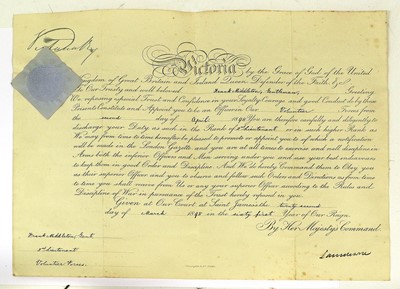 Victoria R
Victoria by the Grace of God of the United
Kingdom of Great Britain and Ireland Queen, Defender of the Faith, &c.
To Our Trusty and well beloved Frank Middleton, Gentleman, Greeting.
We reposing especial Trust and Confidence in your Loyalty, Courage and good Conduct, do by these
Presents Constitute and Appoint you to be an Officer in Our Volunteer Forces from
the second day of April 1898 You are therefore carefully and diligently to
discharge your Duty as such in the Rank of 2nd Lieutenant or in such higher Rank as
We may from time to time hereafter be pleased to promote or appoint you to, of which a notification
will be made in the London Gazette, and you are at all times to exercise and well discipline in
Arms both the inferior Officers and Men serving under you and use your best endeavours
to keep them in good Order and Discipline. And We do hereby Command them to Obey you
as their superior Officer and you to observe and follow such Orders and Directions as from time
to time you shall receive from Us or any your superior Officer according to the Rules and
Discipline of War in pursuance of the Trust hereby reposed in you.
Given at Our Court at Saint James's the twenty second
day of March 1898 in the sixty first Year of Our Reign.
By Her Majesty's Command.
Lansdowne
Frank Middleton, Gent
2nd Lieutenant
Volunteer Forces